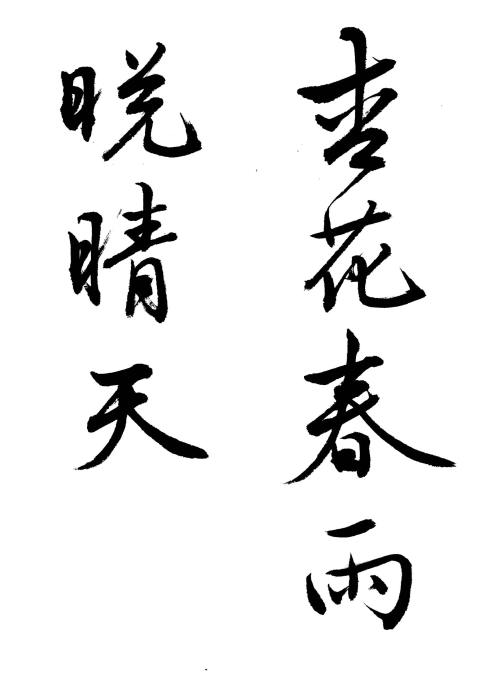 杏花春雨
晩晴天